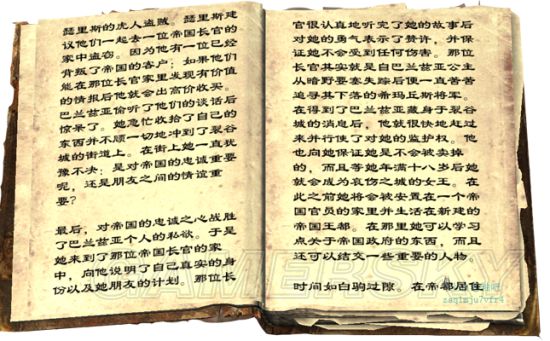 瑟里斯的虎人盗贼。瑟里斯建
议他们一起去一位帝国长官的
家中盗窃。因为他有一位已经
背叛了帝国的客户；如果他们
能在那位长官家里发现有价值
的情报后他就会出高价收买。
巴兰兹亚偷听了他们的谈话后
惊呆了。她急忙收拾了自己的
东西并不顾一切地冲到了裂谷
城的街道上。在街上她一直犹
豫不决：是对帝国的忠诚重要
呢，还是朋友之间的情谊重
要？
最后，对帝国的忠诚之心战胜
了巴兰兹亚个人的私欲。于是
她来到了那位帝国长官的家
中，向他说明了自己真实的身
份以及她朋友的计划。那位长
官很认真地听完了她的故事后
对她的勇气表示了赞许，并保
证她不会受到任何伤害。那位
长官其实就是自巴兰兹亚公主
从暗野要塞失踪后便一直苦苦
追寻其下落的希玛丘斯将军。
在得到了巴兰兹亚藏身于裂谷
城的消息后，他就很快地赶过
来并行使了对她的监护权。他
也向她保证她是不会被卖掉
的，而且等她年满十八岁后她
就会成为哀伤之城的女王。在
此之前她将会被安置在一个帝
国官员的家里并生活在新建的
帝国王都。在那里她可以学习
点关于帝国政府的东西，而且
还可以结交一些重要的人物
时间如白驹过隙。在帝都居住
GAMERSKY